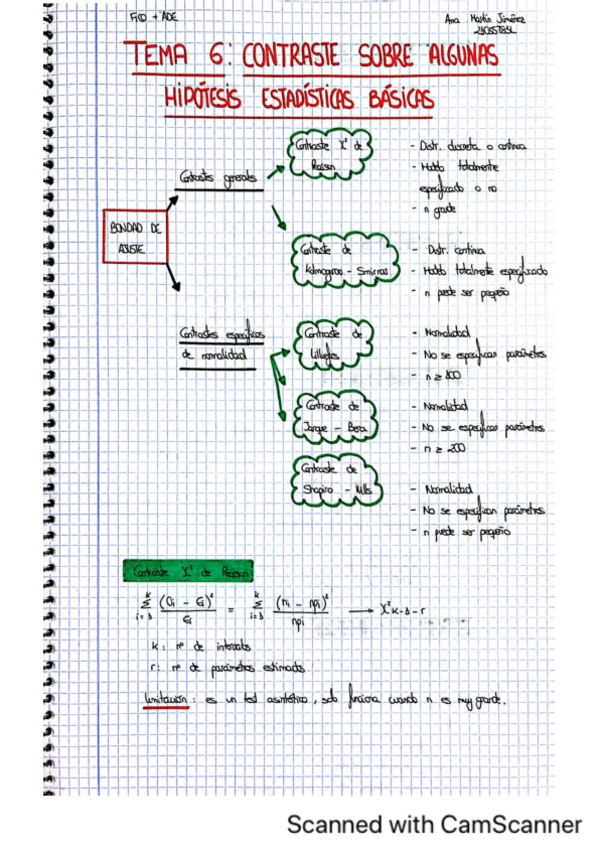 FICO + ADE
Ana Martín Jiménez
TEMA 6: CONTRASTE SOBRE ALGUNAS
HIPÓTESIS ESTADÍSTICAS BÁSICAS
BONDAD DE
AJUSTE
Contrastes generales
Contraste X² de
Pearson
- Distr. discreta o continua
- Modelo totalmente
especificado o no
- n grande
Contraste de
Kolmogorov - Smirnov
- Distr. continua
- Modelo totalmente especificado
- n puede ser pequeño
Contrastes específicos
de normalidad
Contraste de
Lilliefors
- Normalidad
- No se especifican parámetros
- n ≥ 100
Contraste de
Jarque - Bera
- Normalidad
- No se especifican parámetros
- n ≥ 200
Contraste de
Shapiro - Wilks
- Normalidad
- No se especifican parámetros
- n puede ser pequeño
Contraste X² de Pearson
k Σ i=1 (Oi - Ei)² / Ei = k Σ i=1 (ni - npi)² / npi → X² k-1-r
k: nº de intervalos
r: nº de parámetros estimados
Limitación: es un test asintótico, solo funciona cuando n es muy grande.
Scanned with CamScanner